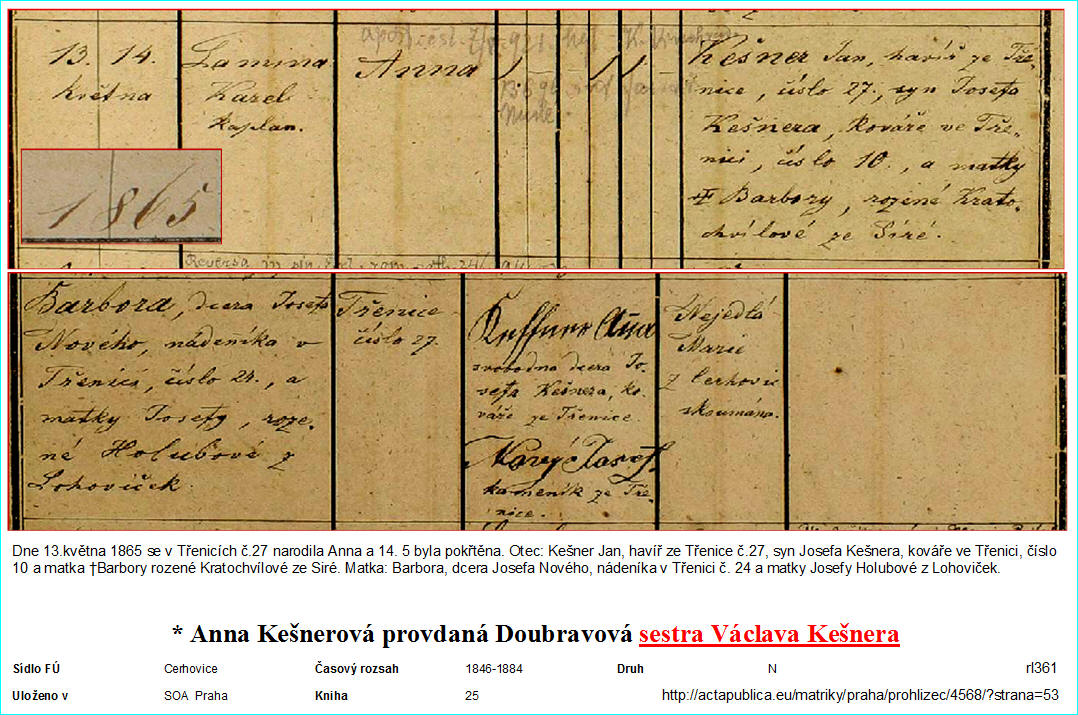 13. 14.
května
Lamina
Karel
kaplan.
Anna
1
1
Kešner Jan, havíř ze Tře-
nice, číslo 27, syn Josefa
Kešnera, kováře ve Tře-
nici, číslo 10, a matky
† Barbory, rozené Krato-
chvílové ze Siré.
1865
Reversa
Barbora, dcera Josefa
Nového, nádeníka v
Třenici, číslo 24., a
matky Josefy, roze-
né Holubové z
Lohoviček.
Třenice
číslo 27.
Kessner Ana
svobodna dcera Jo-
sefa Kešnera, ko-
váře ze Třenice.
Nový Josef
kameník ze Tře-
nice.
Nejedlá
Marie
z Cerhovic
zkoumána.
Dne 13.května 1865 se v Třenicích č.27 narodila Anna a 14. 5 byla pokřtěna. Otec: Kešner Jan, havíř ze Třenice č.27, syn Josefa Kešnera, kováře ve Třenici, číslo
10 a matka †Barbory rozené Kratochvílové ze Siré. Matka: Barbora, dcera Josefa Nového, nádeníka v Třenici č. 24 a matky Josefy Holubové z Lohoviček.
* Anna Kešnerová provdaná Doubravová sestra Václava Kešnera
Sídlo FÚ Cerhovice Časový rozsah 1846-1884 Druh N rl361
Uloženo v SOA Praha Kniha 25 http://actapublica.eu/matriky/praha/prohlizec/4568/?strana=53